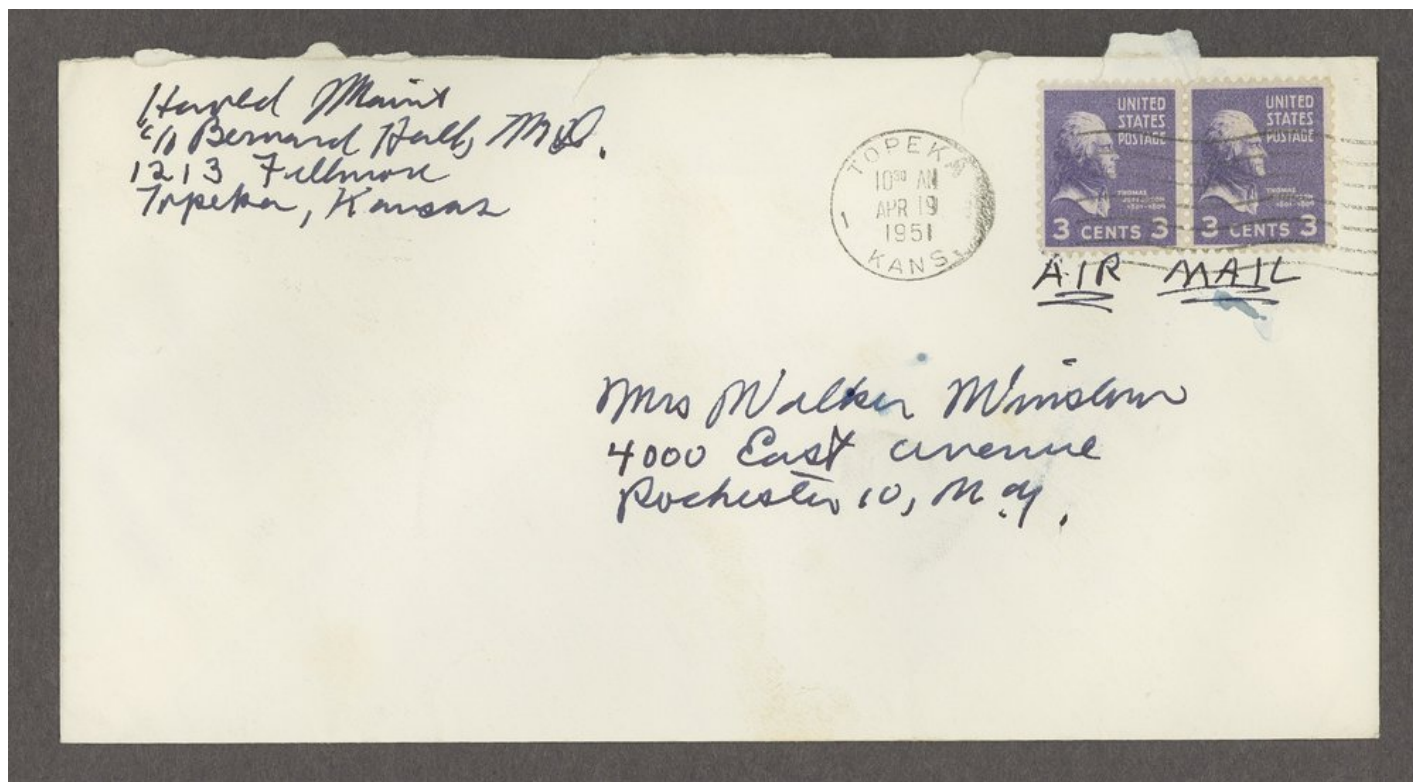 Harold Maine
c/o Bernard Hall, M.D.
1213 Fillmore
Topeka, Kansas
TOPEKA
10 30 AM
APR 19
1951
KANS.
1
UNITED
STATES
POSTAGE
THOMAS
JEFFERSON
3 CENTS 3
UNITED
STATES
POSTAGE
THOMAS
JEFFERSON
3 CENTS 3
AIR MAIL
Mrs Walker Winslow
4000 East avenue
Rochester 10, N.Y.